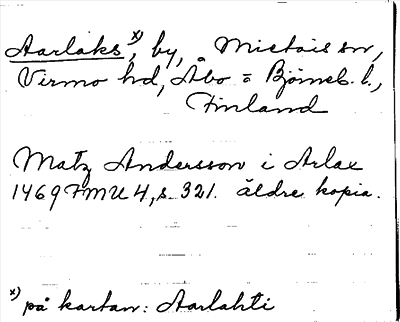 Aarlaks x), by, Mietois sn,
Virmo hd, Åbo = Björneb. l.,
Finland
Matz Andersson i Arlax
1469 FMU 4, s. 321. äldre kopia.
x) på kartan: Aarlahti